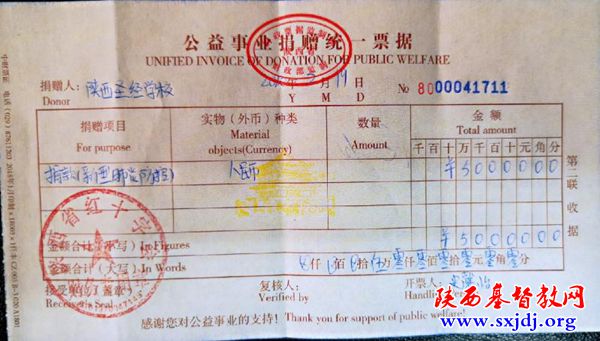 公益事业捐赠统一票据
UNIFIED INVOICE OF DONATION FOR PUBLIC WELFARE
捐赠人: 陕西圣经学校 年 月 19 日 № 8000041711
Donor Y M D
捐赠项目 实物（外币）种类 数量 金额
For purpose Material objects(Currency) Amount Total amount
千 百 十 万 千 百 十 元 角 分
捐款 人民币 ¥ 5 0 0 0 0 0 0
金额合计（小写）In Figures ¥ 5 0 0 0 0 0 0
金额合计（大写）In Words 仟 佰 拾 伍 万 零 仟 零 佰 零 拾 零 元 零 角 零 分
接受单位（盖章） 复核人: 开票人:
Receiver's Seal Verified by Handling
感谢您对公益事业的支持！Thank you for support of public welfare!
第二联 收据
陕西省红十字会
陕西基督教网
www.sxjdj.org